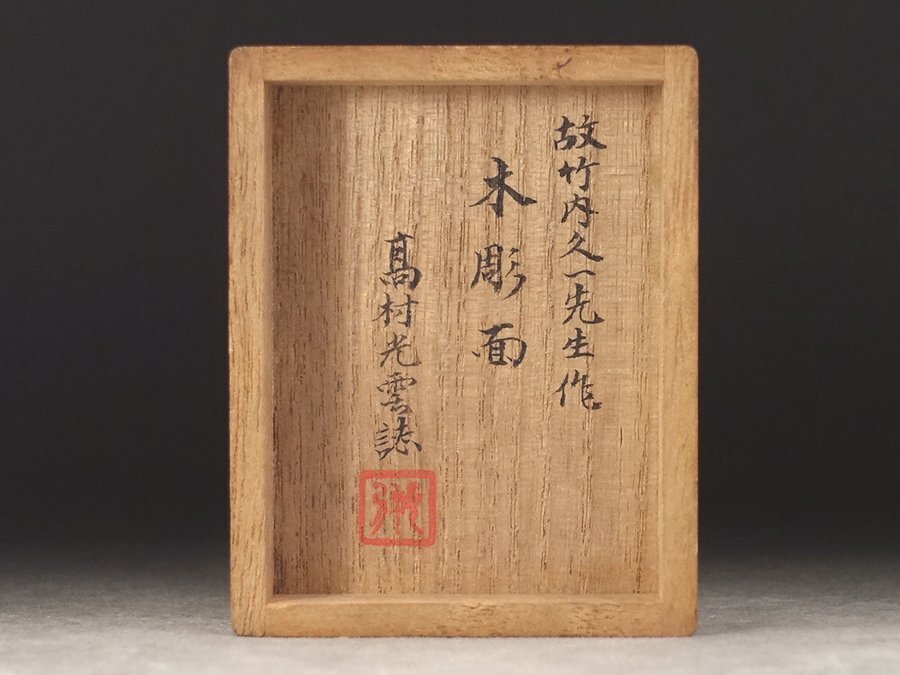 故竹内久一先生作
木彫面
髙村光雲誌